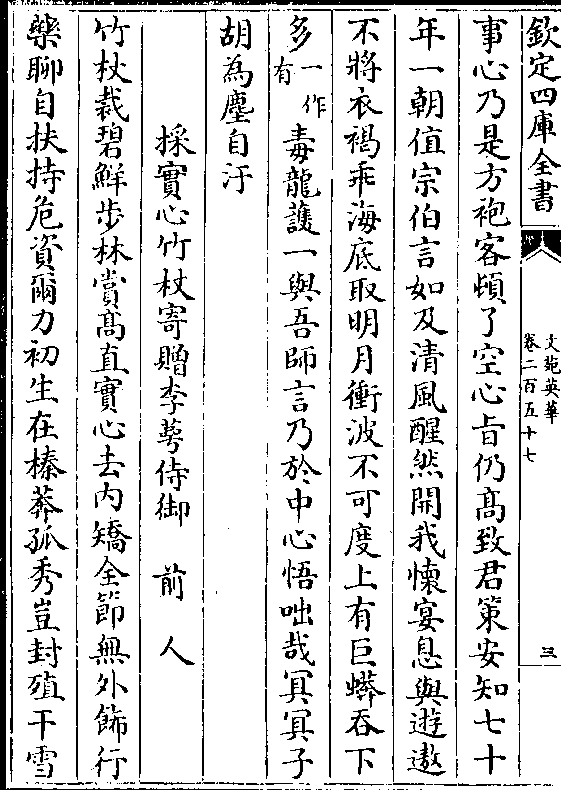 欽定四庫全書
文苑英華
卷二百五十七
三
事心乃是方袍客頓了空心㫖仍髙致君策安知七十
年一朝值宗伯言如及清風醒然開我懐宴息與遊遨
不將衣褐乖海底取明月衝波不可度上有巨蠎吞下
多一作有毒龍護一與吾師言乃於中心悟咄哉冥冥子
胡為塵自汙
採實心竹杖寄贈李萼侍御　前　人
竹杖裁碧鮮步林賞髙直實心去内矯全節無外飾行
藥聊自扶持危資爾力初生在榛莽孤秀豈封殖干雪